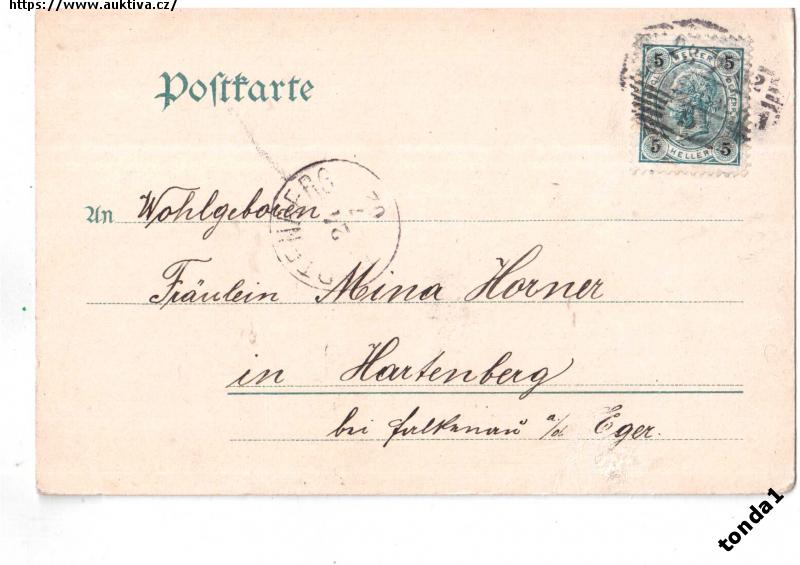 https://www.auktiva.cz/
Postkarte
5 HELLER 5
5 HELLER 5
An Wohlgeboren
Fräulein Mina Horner
in Hartenberg
bei Falkenau a/d. Eger.
tonda1